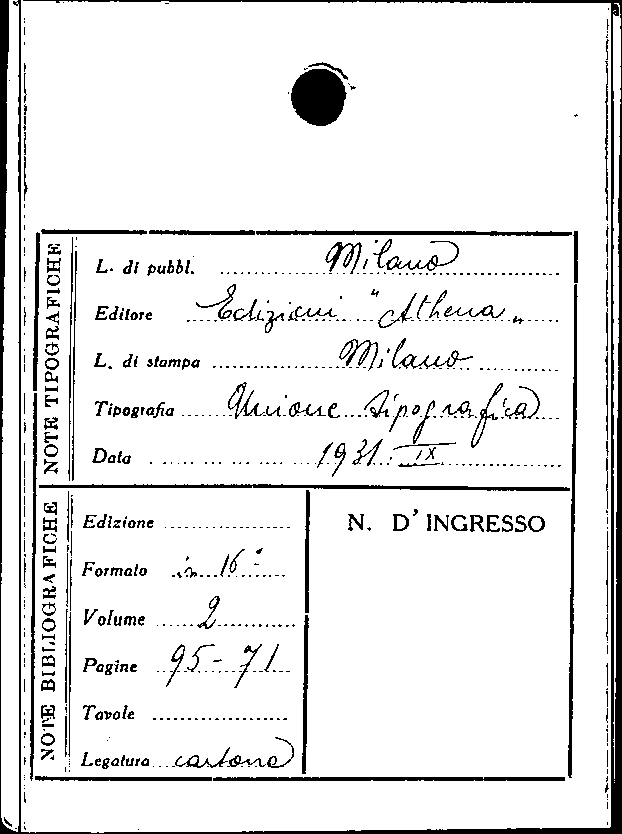 NOTE TIPOGRAFICHE
L. di pubbl. Milano
Editore Edizioni "Athena„
L. di stampa Milano
Tipografia Unione tipografica
Data 1931. IX
NOTE BIBLIOGRAFICHE
Edizione
Formato in 16°
Volume 2
Pagine 95-71
Tavole
Legatura cartone
N. D'INGRESSO